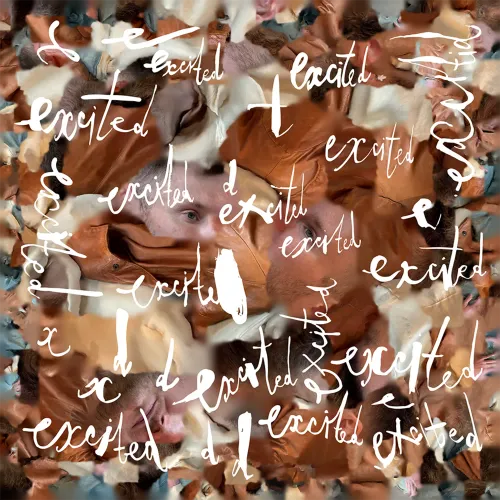 e
e
excited
excited
excited
t
excited
excited
excited
d
excited
e
excited
excited
excited
excite
x
d
x
d
excited
excited
excited
excited
d
d
excited
excited